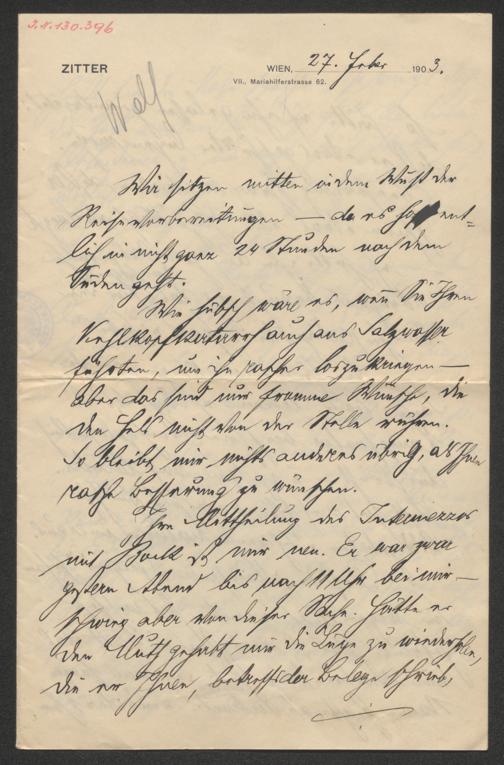 J.N. 130.396
ZITTER
WIEN, 27. Feber 1903.
VII., Mariahilferstrasse 62.
Wolf
Wir sitzen mitten in dem Wust der
Reisevorbereitungen — da es hoffent-
lich in nicht ganz 24 Stunden nach dem
Süden geht.
Wie hübsch wäre es, wenn Sie Ihren
Kehlkopfkatarrh auch ans Salzwasser
führten, um ihn rascher loszukriegen —
aber das sind nur fromme Wünsche, die
den Fels nicht von der Stelle rühren.
So bleibt mir nichts anderes übrig, als Ihnen
rasche Besserung zu wünschen.
Ihre Mittheilung des Intermezzos
mit Bock ist mir neu. Er war zwar
gestern Abend bis nach 11 Uhr bei mir —
schwieg aber von dieser Sache. Hätte er
den Muth gehabt mir die Lüge zu wiederholen,
die er Ihnen, betreffs der Belege schrieb,